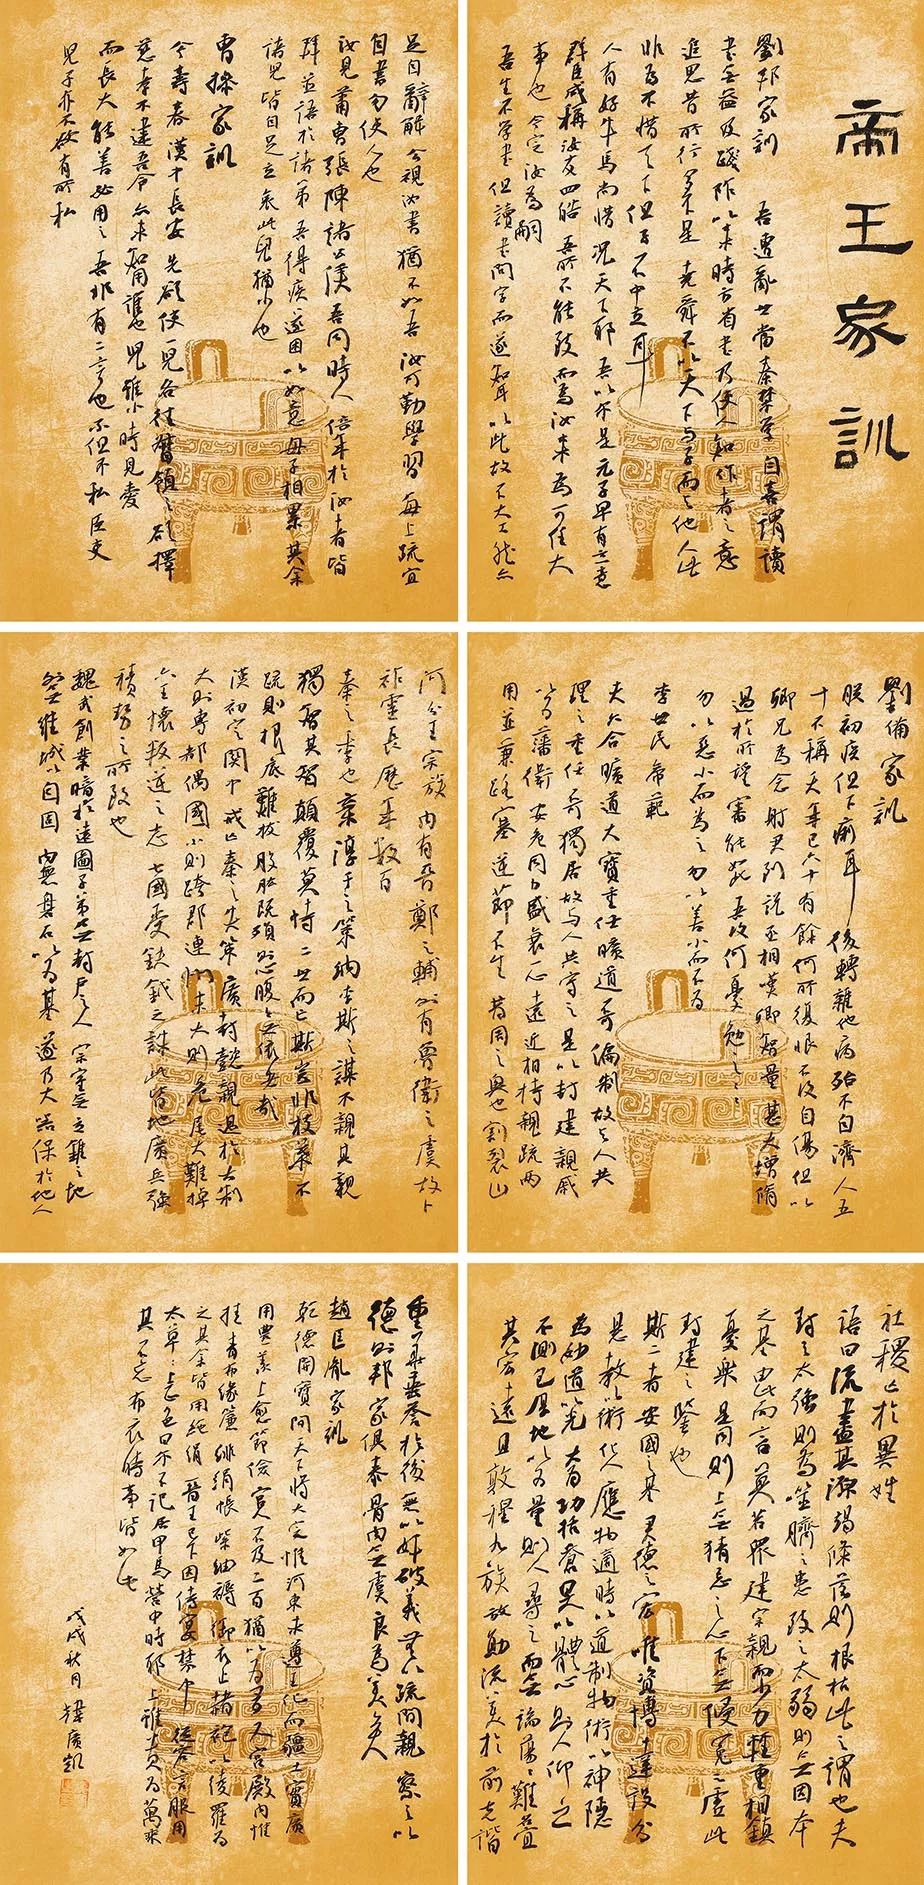 帝王家訓
劉邦家訓 吾遭亂世當秦禁學自喜謂讀
書無益及踐阼以來時方省書乃使人知作者之意
追思昔所行多不是堯舜不以天下與子而與他人此
非為不惜天下但子不中立耳
人有好牛馬尚惜況天下耶吾以尔是元子早有立意
群臣咸稱汝友四皓吾所不能致而為汝來為可任大
事也今定汝為嗣
吾生不學書但讀書問字而遂知耳以此故不大工然亦
足自辭解今視汝書猶不如吾汝可勤學習每上疏宜
自書勿使人也
汝見蕭曹張陳諸公侯吾同時人倍年於汝者皆
拜並語於諸弟吾得疾遂困以如意母子相累其余
諸兒皆自足立哀此兒猶小也
曹操家訓
今壽春漢中長安先欲使一兒各往督領之欲擇
慈孝不違吾令亦未知用誰也兒雖小時見愛
而長大能善必用之吾非有二言也不但不私臣吏
兒子亦不欲有所私
劉備家訓
朕初疾但下痢耳後轉雜他病殆不自濟人五
十不稱夭年已六十有餘何所復恨不復自傷但以
卿兄弟為念射君到說丞相嘆卿智量甚大增脩
過於所望審能如此吾復何憂勉之勉之
勿以惡小而為之勿以善小而不為
李世民帝範
夫六合曠道大寶重任曠道不可偏制故與人共
理之重任不可獨居故與人共守之是以封建親戚
以為藩衛安危同力盛衰一心遠近相持親疏兩
用並兼路塞逆節不生昔周之興也割裂山
河分王宗族內有晉鄭之輔外有魯衛之虞故卜
祚靈長歷年數百
秦之季也棄淳于之策納李斯之謀不親其親
獨智其智顛覆莫恃二世而亡斯豈非枝葉不
疏則根柢難拔股肱既殞則心腹無依者哉
漢初定關中戒亡秦之失策廣封懿親過於古制
大則專都偶國小則跨郡連州末大則危尾大難掉
六王懷叛逆之志七國受鈇鉞之誅此皆地廣兵強
積勢之所致也
魏武創業暗於遠圖子弟無封戶之人宗室無立錐之地
外無維城以自固內無磐石以為基遂乃大器保於他人
社稷亡於異姓
語曰流盡其源竭條落則根枯此之謂也夫
封之太強則為噬臍之患致之太弱則無固本
之基由此而言莫若眾建宗親而少力輕重相鎮
憂樂是同則上無猜忌之心下無侵冤之慮此
封建之鑒也
斯二者安國之基君德之宏唯資博達設分
懸教以術化人應物適時以道制物術以神隱
為妙道以光大為功括蒼旻以體心則人仰之
不測包厚地以為量則人尋之而無端蕩蕩難
其宏遠且敦穆九族放勛流美於前克諧
重華垂譽於後無以奸破義無以疏間親察之以
德則邦家俱泰骨肉無虞良為美矣
趙匡胤家訓
乾德開寶間天下將大定惟河東未遵王化而疆土實廣
用豐羨上愈節儉宮人不及二百猶以為多又宮殿內惟
挂青布緣簾緋絹帳紫紬褥御衣止赭袍以綾羅為
之其余皆用絁絹晉王已下因侍宴禁中從容言服用
太草草上正色曰尔不記居甲馬營中時耶上雖貴為萬乘
其不忘布衣時事皆如此
戊戌秋月 廣凱